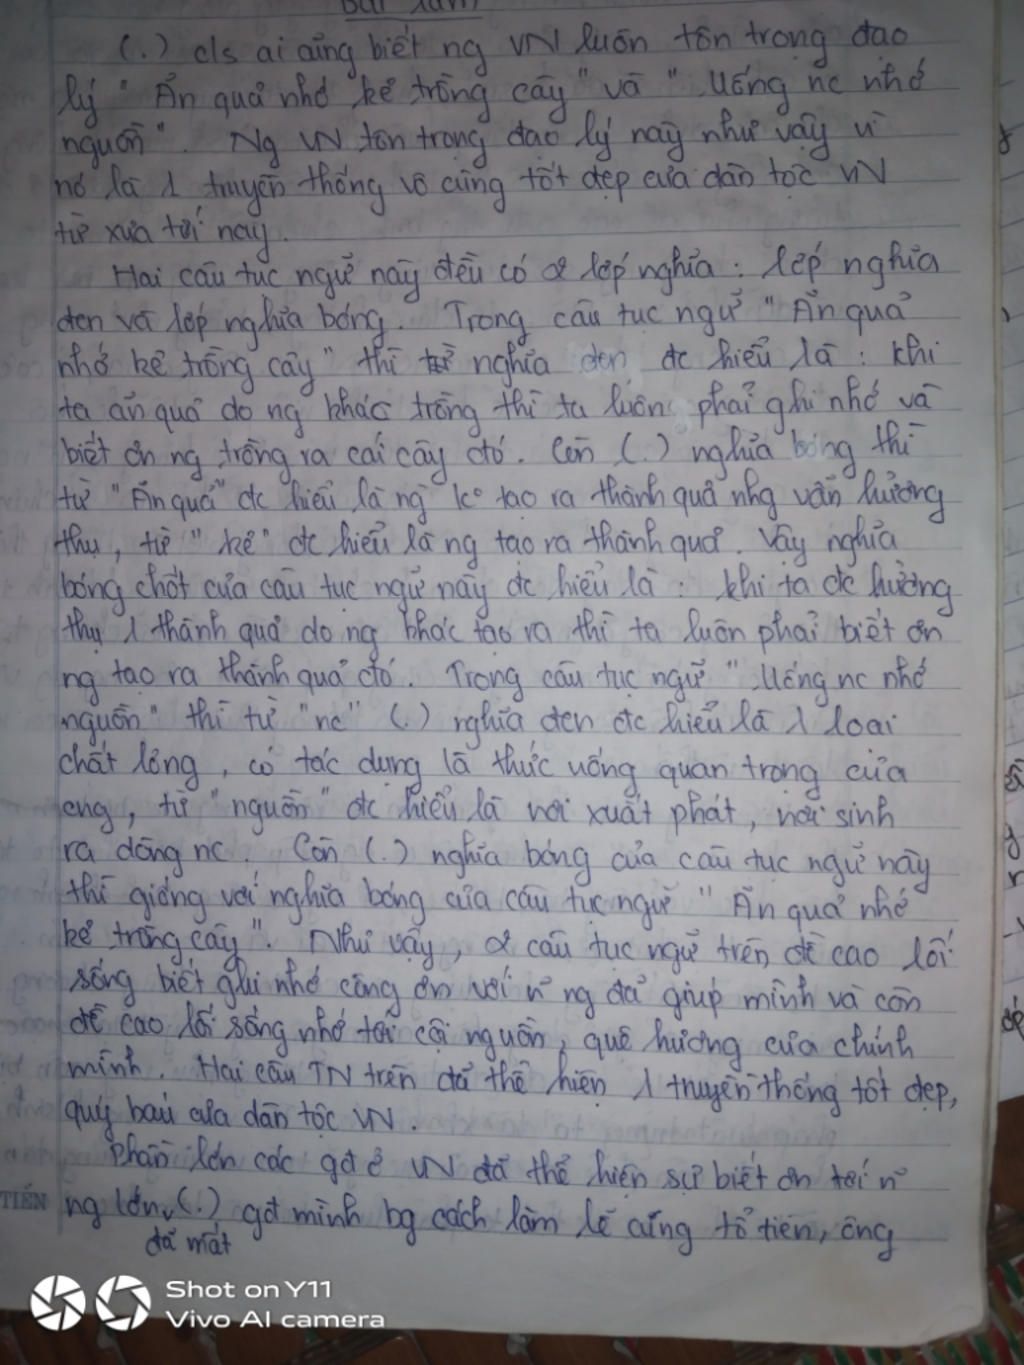 Bài làm
(.) cls ai cũng biết ng VN luôn tôn trọng đạo
lý "Ăn quả nhớ kẻ trồng cây" và "Uống nc nhớ
nguồn". Ng VN tôn trọng đạo lý này như vậy vì
nó là 1 truyền thống vô cùng tốt đẹp của dân tộc VN
từ xưa tới nay.
Hai câu tục ngữ này đều có 2 lớp nghĩa: lớp nghĩa
đen và lớp nghĩa bóng. Trong câu tục ngữ "Ăn quả
nhớ kẻ trồng cây" thì nghĩa đen đc hiểu là: khi
ta ăn quả do ng khác trồng thì ta luôn phải ghi nhớ và
biết ơn ng trồng ra cái cây đó. Còn (.) nghĩa bóng thì
từ "Ăn quả" đc hiểu là ng ko tạo ra thành quả nhg vẫn hưởng
thụ, từ "kẻ" đc hiểu là ng tạo ra thành quả. Vậy nghĩa
bóng chốt của câu tục ngữ này đc hiểu là: khi ta đc hưởng
thụ 1 thành quả do ng khác tạo ra thì ta luôn phải biết ơn
ng tạo ra thành quả đó. Trong câu tục ngữ "Uống nc nhớ
nguồn" thì từ "nc" (.) nghĩa đen đc hiểu là 1 loại
chất lỏng, có tác dụng là thức uống quan trọng của
cng, từ "nguồn" đc hiểu là nơi xuất phát, nơi sinh
ra dòng nc. Còn (.) nghĩa bóng của câu tục ngữ này
thì giống với nghĩa bóng của câu tục ngữ "Ăn quả nhớ
kẻ trồng cây". Như vậy, 2 câu tục ngữ trên đề cao lối
sống biết ghi nhớ công ơn với n~ ng đã giúp mình và còn
đề cao lối sống nhớ tới cội nguồn, quê hương của chính
mình. Hai câu TN trên đã thể hiện 1 truyền thống tốt đẹp,
quý báu của dân tộc VN.
Phần lớn các gđ ở VN đã thể hiện sự biết ơn tới n~
TIẾN
ng lớn (.) gđ mình bg cách làm lễ cúng tổ tiên, ông
đã mất
Shot on Y11
Vivo AI camera